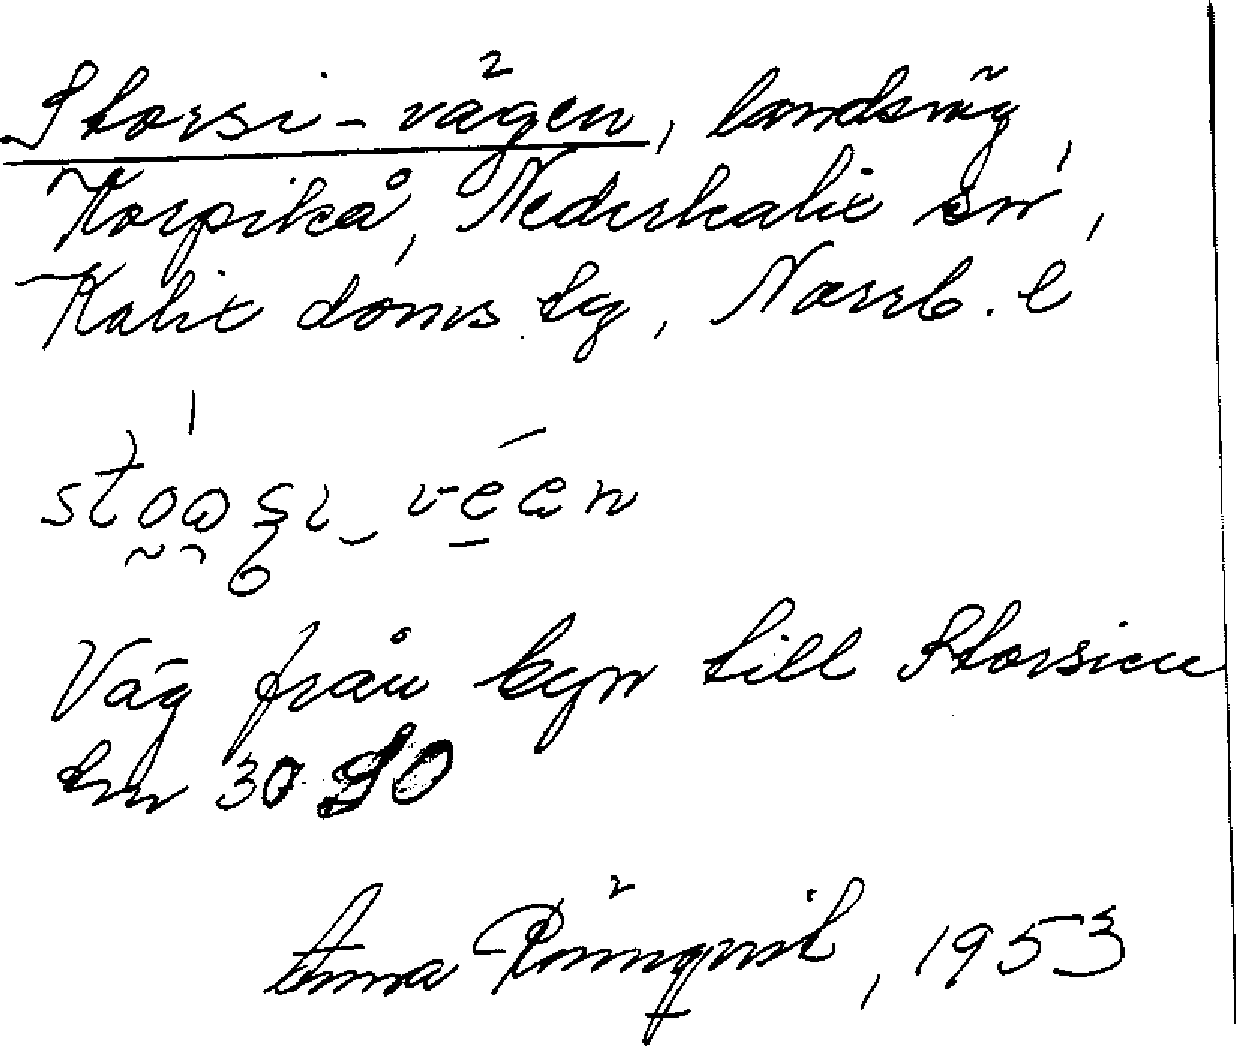 Storsi-vägen, landsväg,
Korpikå, Nederkalix sn,
Kalix doms. lg, Norrb. l
Väg från byn till Storsien
30 90
Anna Rönnqvist, 1953